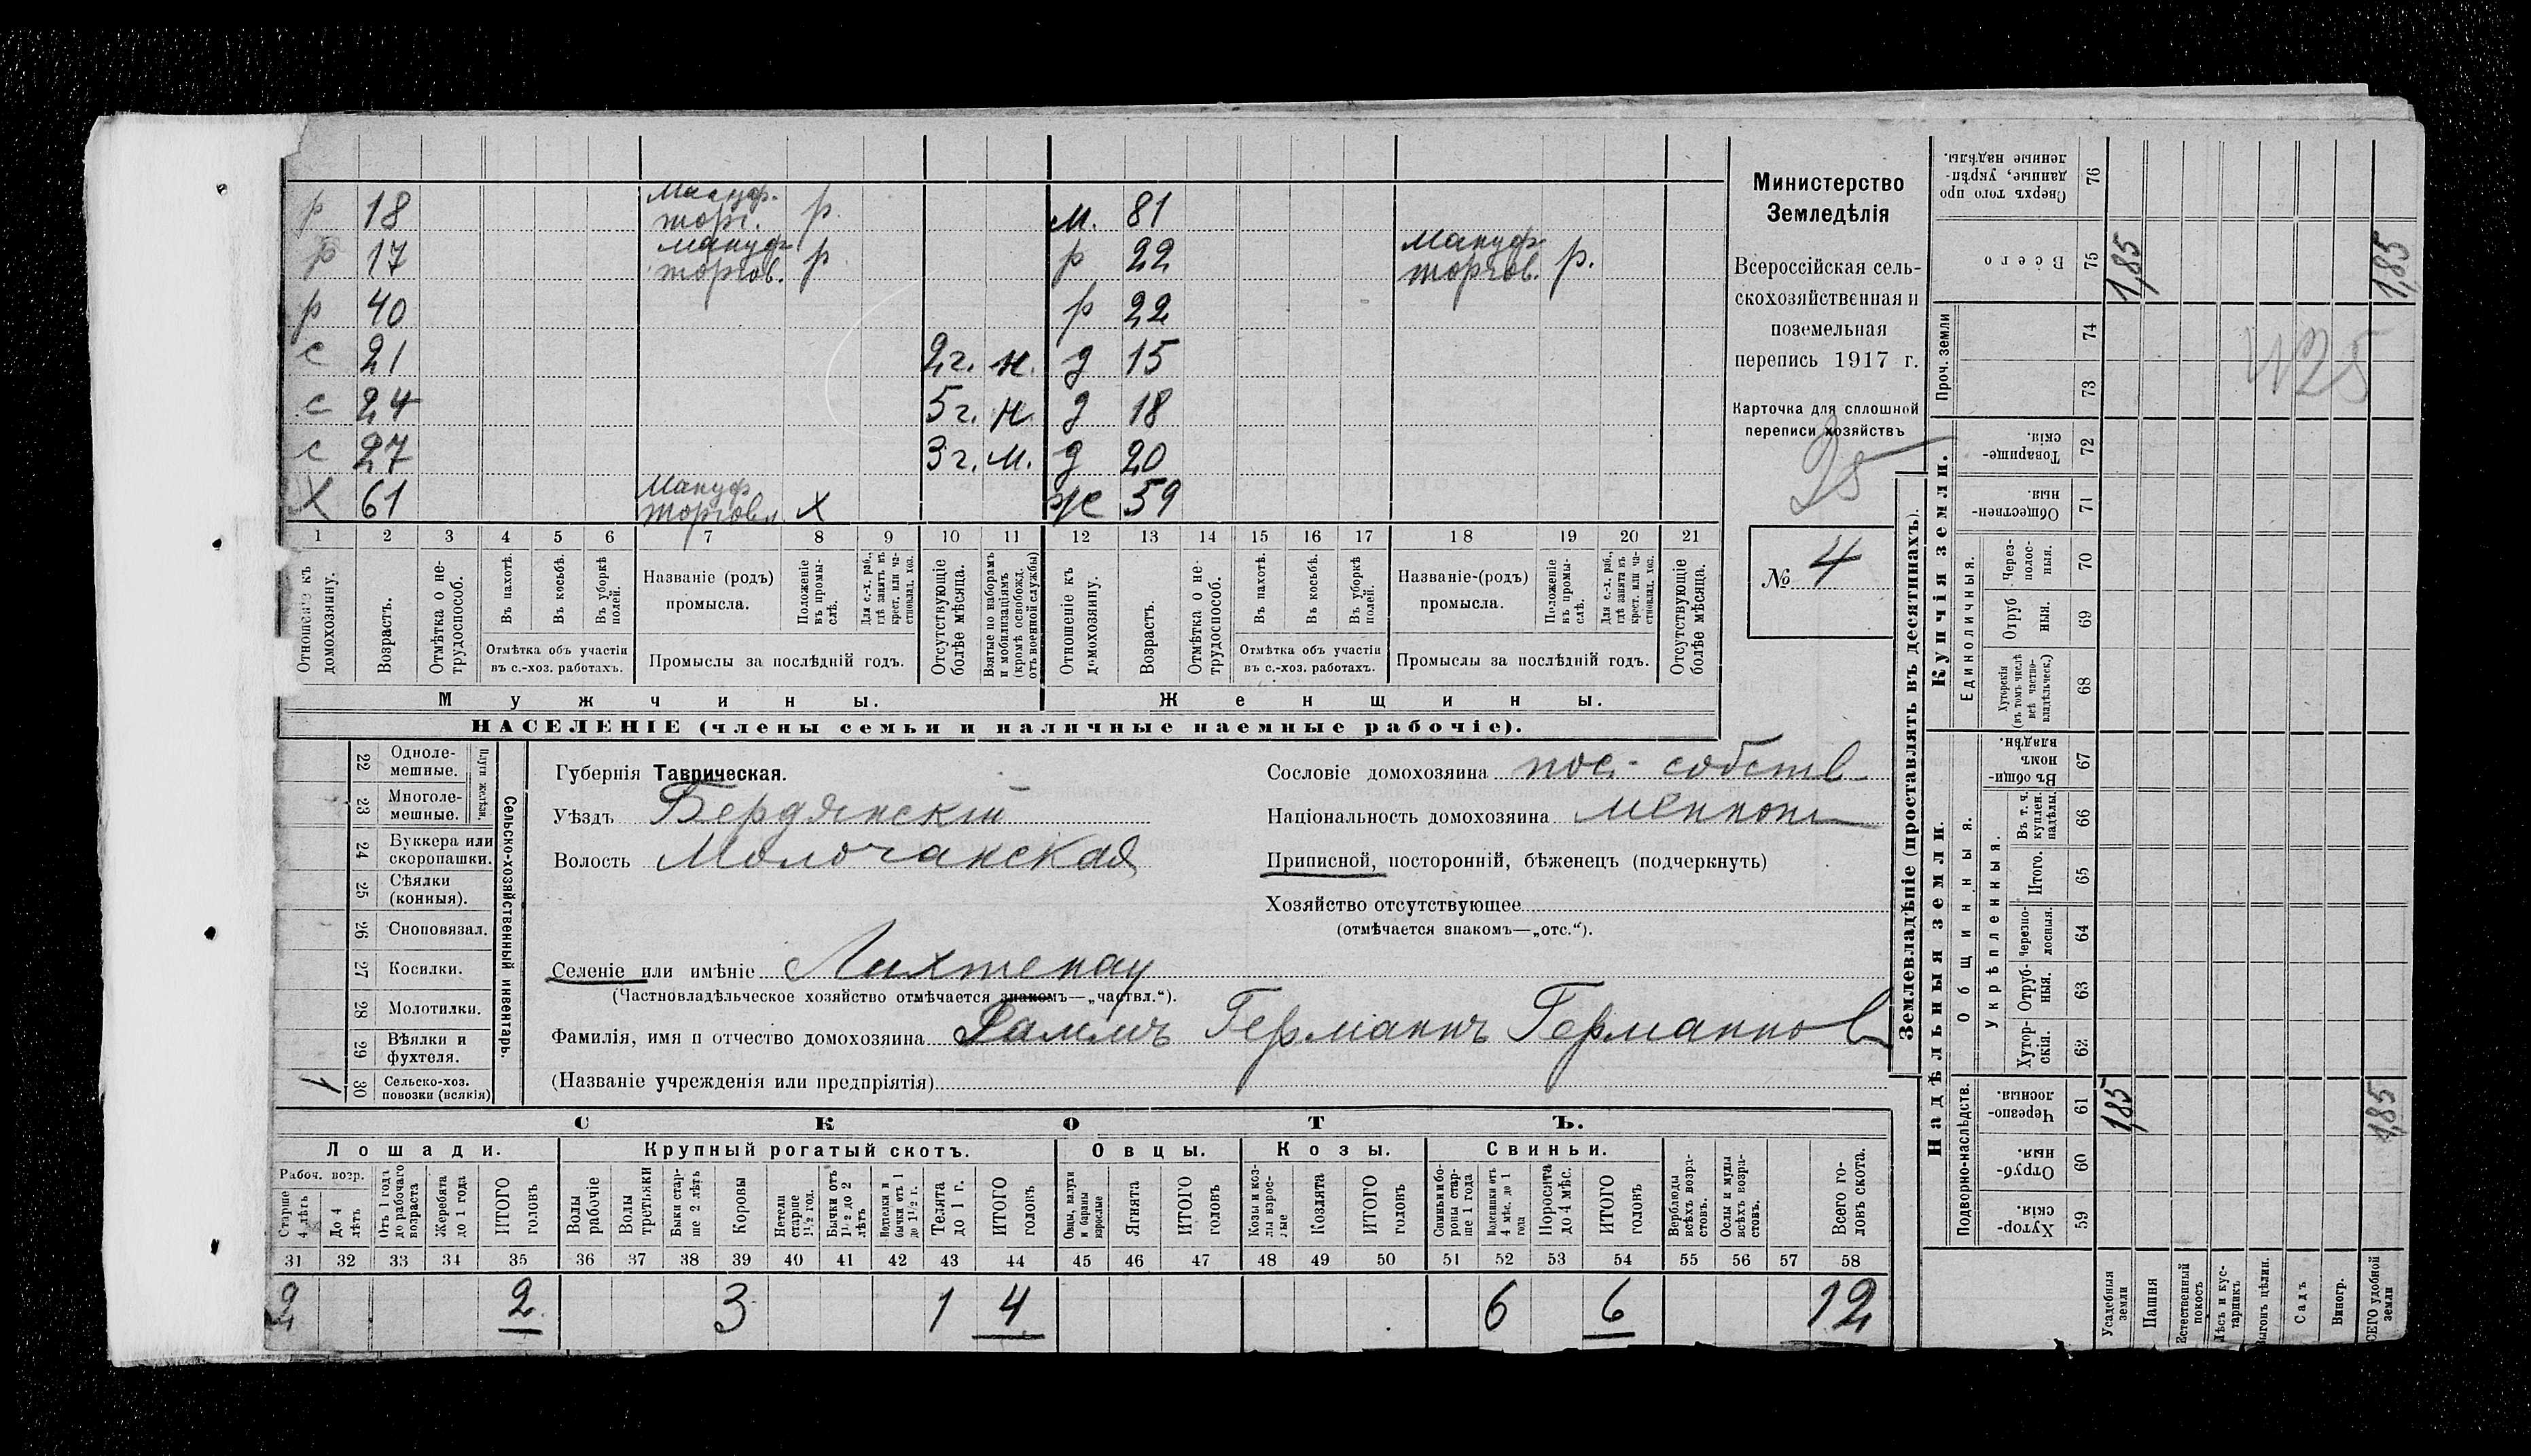 р 18 Мануф. торг. р. м. 81
р 17 Мануф. торгов. р р 22 Мануф. торгов. р.
р 40 р 22
с 21 2 г. н. д 15
с 24 5 г. н д 18
с 27 3 г. м. д 20
X 61 Мануф. торговл. X ж 59
1 2 3 4 5 6 7 8 9 10 11 12 13 14 15 16 17 18 19 20 21
Отношеніе къ домохозяину.
Возрастъ.
Отмѣтка о нетрудоспособ.
Въ пахотѣ.
Въ косьбѣ.
Въ уборкѣ полей.
Отмѣтка объ участіи
въ с.-хоз. работахъ.
Названіе (родъ)
промысла.
Положеніе въ промыслѣ.
Для с.-х. раб., гдѣ занятъ въ крест. или частновлад. хоз.
Промыслы за послѣдній годъ.
Отсутствующіе болѣе мѣсяца.
Взятые по наборамъ и мобилизаціямъ (кромѣ освобожд. отъ военной службы)
Отношеніе къ домохозяину.
Возрастъ.
Отмѣтка о нетрудоспособ.
Въ пахотѣ.
Въ косьбѣ.
Въ уборкѣ полей.
Отмѣтка объ участіи
въ с.-хоз. работахъ.
Названіе-(родъ)
промысла.
Положеніе въ промыслѣ.
Для с.-х. раб., гдѣ занята въ крест. или частновлад. хоз.
Промыслы за послѣдній годъ.
Отсутствующіе болѣе мѣсяца.
Мужчины. Женщины.
НАСЕЛЕНІЕ (члены семьи и наличные наемные рабочіе).
Министерство
Земледѣлія
Всероссійская сель-
скохозяйственная и
поземельная
перепись 1917 г.
Карточка для сплошной
переписи хозяйствъ
25
№ 4
Сельско-хозяйственный инвентарь.
Плуги желѣзн.
22 Одноле-
мешные.
23 Многоле-
мешные.
24 Буккера или
скоропашки.
25 Сѣялки
(конныя).
26 Сноповязал.
27 Косилки.
28 Молотилки.
29 Вѣялки и
фухтеля.
1 30 Сельско-хоз.
повозки (всякія)
Губернія Таврическая.
Уѣздъ Бердянскій
Волость Молочанская
Селеніе или имѣніе Лихтенау
(Частновладѣльческое хозяйство отмѣчается знакомъ—„частвл.“).
Фамилія, имя и отчество домохозяина Даммъ Германъ Германнов
(Названіе учрежденія или предпріятія)
Сословіе домохозяина пос. собств
Національность домохозяина меннони
Приписной, посторонній, бѣженецъ (подчеркнуть)
Хозяйство отсутствующее
(отмѣчается знакомъ—„отс.“).
СКОТЪ.
Лошади. Крупный рогатый скотъ. Овцы. Козы. Свиньи.
Рабоч. возр.
Старше 4 лѣтъ
До 4 лѣтъ
Отъ 1 года до рабочаго возраста
Жеребята до 1 года
ИТОГО головъ
Волы рабочіе
Волы третьяки
Быки старше 2 лѣтъ
Коровы
Нетели старше 1½ год.
Бычки отъ 1½ до 2 лѣтъ
Подтелки и бычки отъ 1 до 1½ г.
Телята до 1 г.
ИТОГО головъ
Овцы, валухи и бараны взрослые
Ягнята
ИТОГО головъ
Козы и козлы взрослые
Козлята
ИТОГО головъ
Свиньи и боровы старше 1 года
Подсвинки отъ 4 мѣс. до 1 года
Поросята до 4 мѣс.
ИТОГО головъ
Верблюды всѣхъ возрастовъ.
Ослы и мулы всѣхъ возрастовъ.
Всего головъ скота.
31 32 33 34 35 36 37 38 39 40 41 42 43 44 45 46 47 48 49 50 51 52 53 54 55 56 57 58
2 2 3 1 4 6 6 12
Землевладѣніе (проставлять въ десятинахъ).
Купчія земли.
Надѣльныя земли.
Проч. земли
Единоличныя.
Общинныя.
Укрѣпленныя.
Подворно-наслѣдств.
Сверхъ того проданные, укрѣпленные надѣлы. 76
Всего 75 1,85 1,85
74
73
Товарищескія. 72
Общественныя. 71
Черезполосныя. 70
Отрубныя. 69
Хуторскія (въ томъ числѣ всѣ частновладѣльческ.) 68
Въ общинномъ владѣн. 67
Въ т. ч. куплен. надѣлы. 66
Итого. 65
Черезполосныя. 64
Отрубныя. 63
Хуторскія. 62
Черезполосныя. 61 1,85 1,85
Отрубныя. 60
Хуторскія. 59
Усадебныя земли
Пашня
Естественный покосъ
Лѣсъ и кустарникъ
Выгонъ цѣлин.
Садъ
Виногр.
ВСЕГО удобной земли